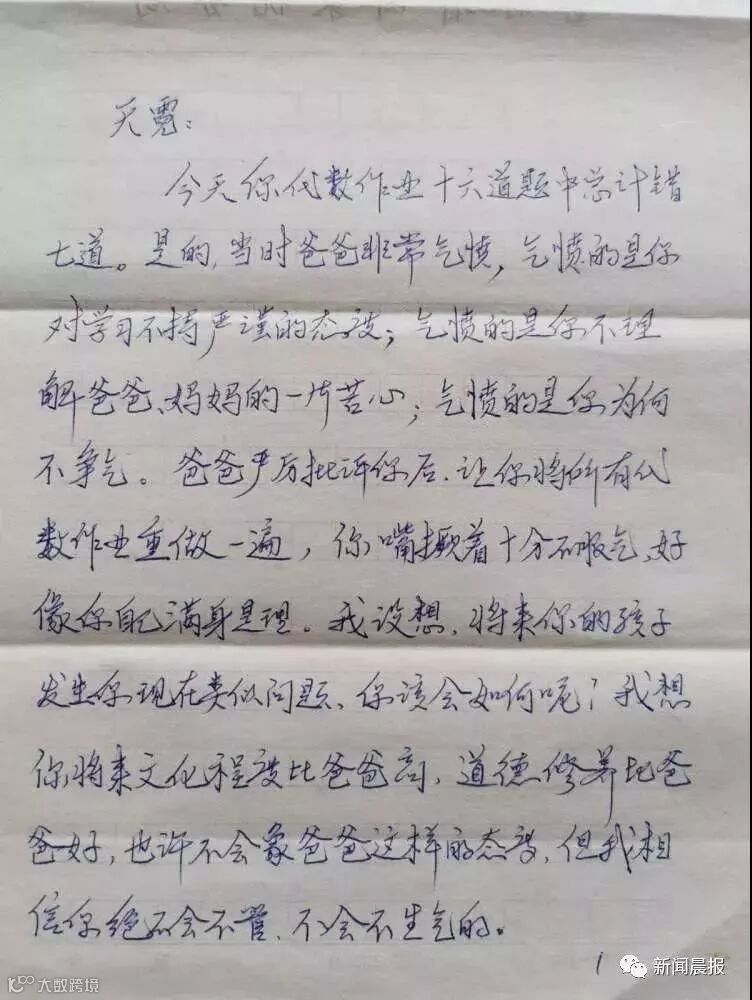 天霓：
今天你代数作业十六道题中总计错
七道。是的，当时爸爸非常气愤，气愤的是你
对学习不持严谨的态度；气愤的是你不理
解爸爸、妈妈的一片苦心；气愤的是你为何
不争气。爸爸严厉批评你后，让你将所有代
数作业重做一遍，你嘴撅着十分不服气，好
像你自己满身是理。我设想，将来你的孩子
发生你现在类似问题、你该会如何呢？我想
你将来文化程度比爸爸高，道德修养比爸
爸好，也许不会象爸爸这样的态度，但我相
信你绝不会不管、不会不生气的。
1
大数跨境
新闻晨报